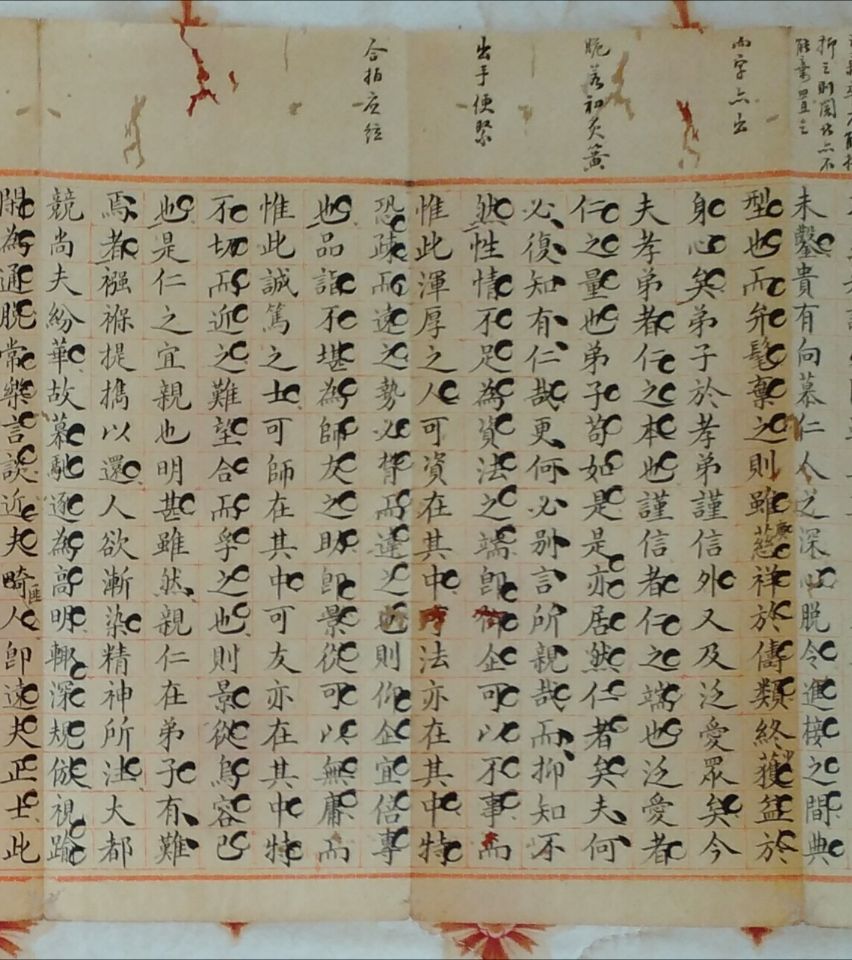 抑之則闊於亦不
能棄置之
內字亦出
脆若初炙簧
出手便緊
合拍应絃
未鑿貴有向慕仁人之深心脫令進接之間典
型也而弁髦棄之則雖慈祥於儔類終獲益於
身心矣弟子於孝弟謹信外又及泛愛眾矣今
夫孝弟者仁之本也謹信者仁之端也泛愛者
仁之量也弟子苟如是是亦居然仁者矣夫何
必復知有仁哉更何必別言所親哉而抑知不
然性情不足為資法之端即仰企可以不事而
惟此渾厚之人可資在其中可法亦在其中特
恐疎而遠之勢必督而違之也則仰企宜倍專
也品詣不堪為師友之助即景從可以無庸而
惟此誠篤之士可師在其中可友亦在其中特
不切而近之難望合而孚之也則景從烏容已
也是仁之宜親也明甚雖然親仁在弟子有難
焉者襁褓提攜以還人欲漸染精神所注大都
競尚夫紛華故慕馳逐為高明輒深規倣視踰
閑為通脫常樂言談近夫畸人即遠夫正士此